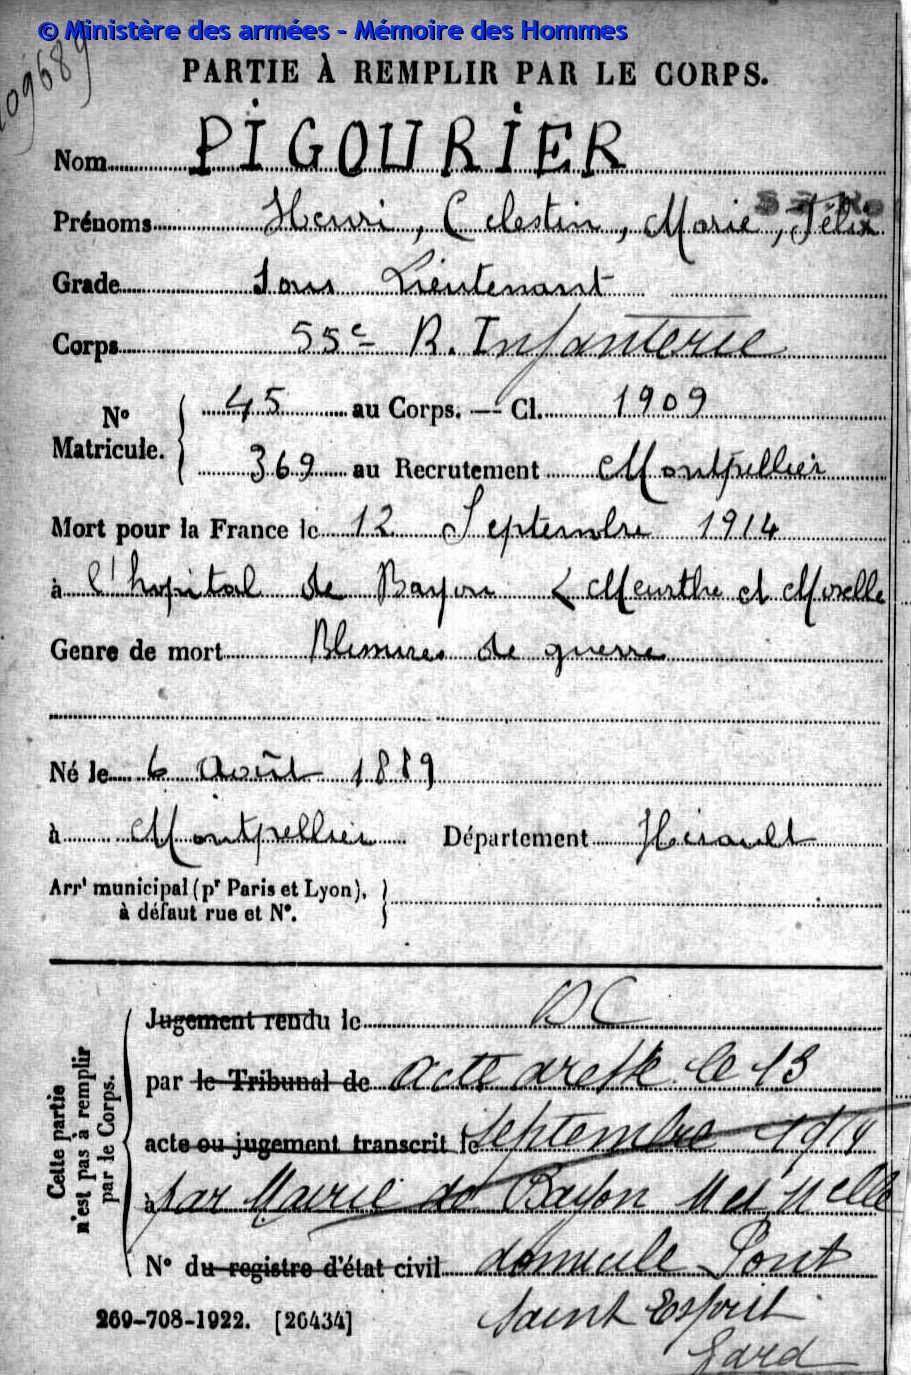 © Ministère des armées - Mémoire des Hommes
09689
PARTIE À REMPLIR PAR LE CORPS.
Nom PIGOURIER
Prénoms Henri, Celestin, Marie, Félix
Grade Sous Lieutenant
Corps 55e R. Infanterie
45 au Corps. — Cl. 1909
No Matricule.
369 au Recrutement Montpellier
Mort pour la France le 12 Septembre 1914
à l'hopital de Bayon Meurthe et Moselle
Genre de mort Blessures de guerre
Né le 6 Août 1889
à Montpellier Département Hérault
Arrt municipal (pr Paris et Lyon),
à défaut rue et No.
Cette partie
n'est pas à remplir
par le Corps.
Jugement rendu le DC
par le Tribunal de acte dressé le 13
acte ou jugement transcrit le Septembre 1914
à par Mairie de Bayon M et Melle
No du registre d'état civil domicile Pont
Saint Esprit
Gard
269-708-1922. [26434]